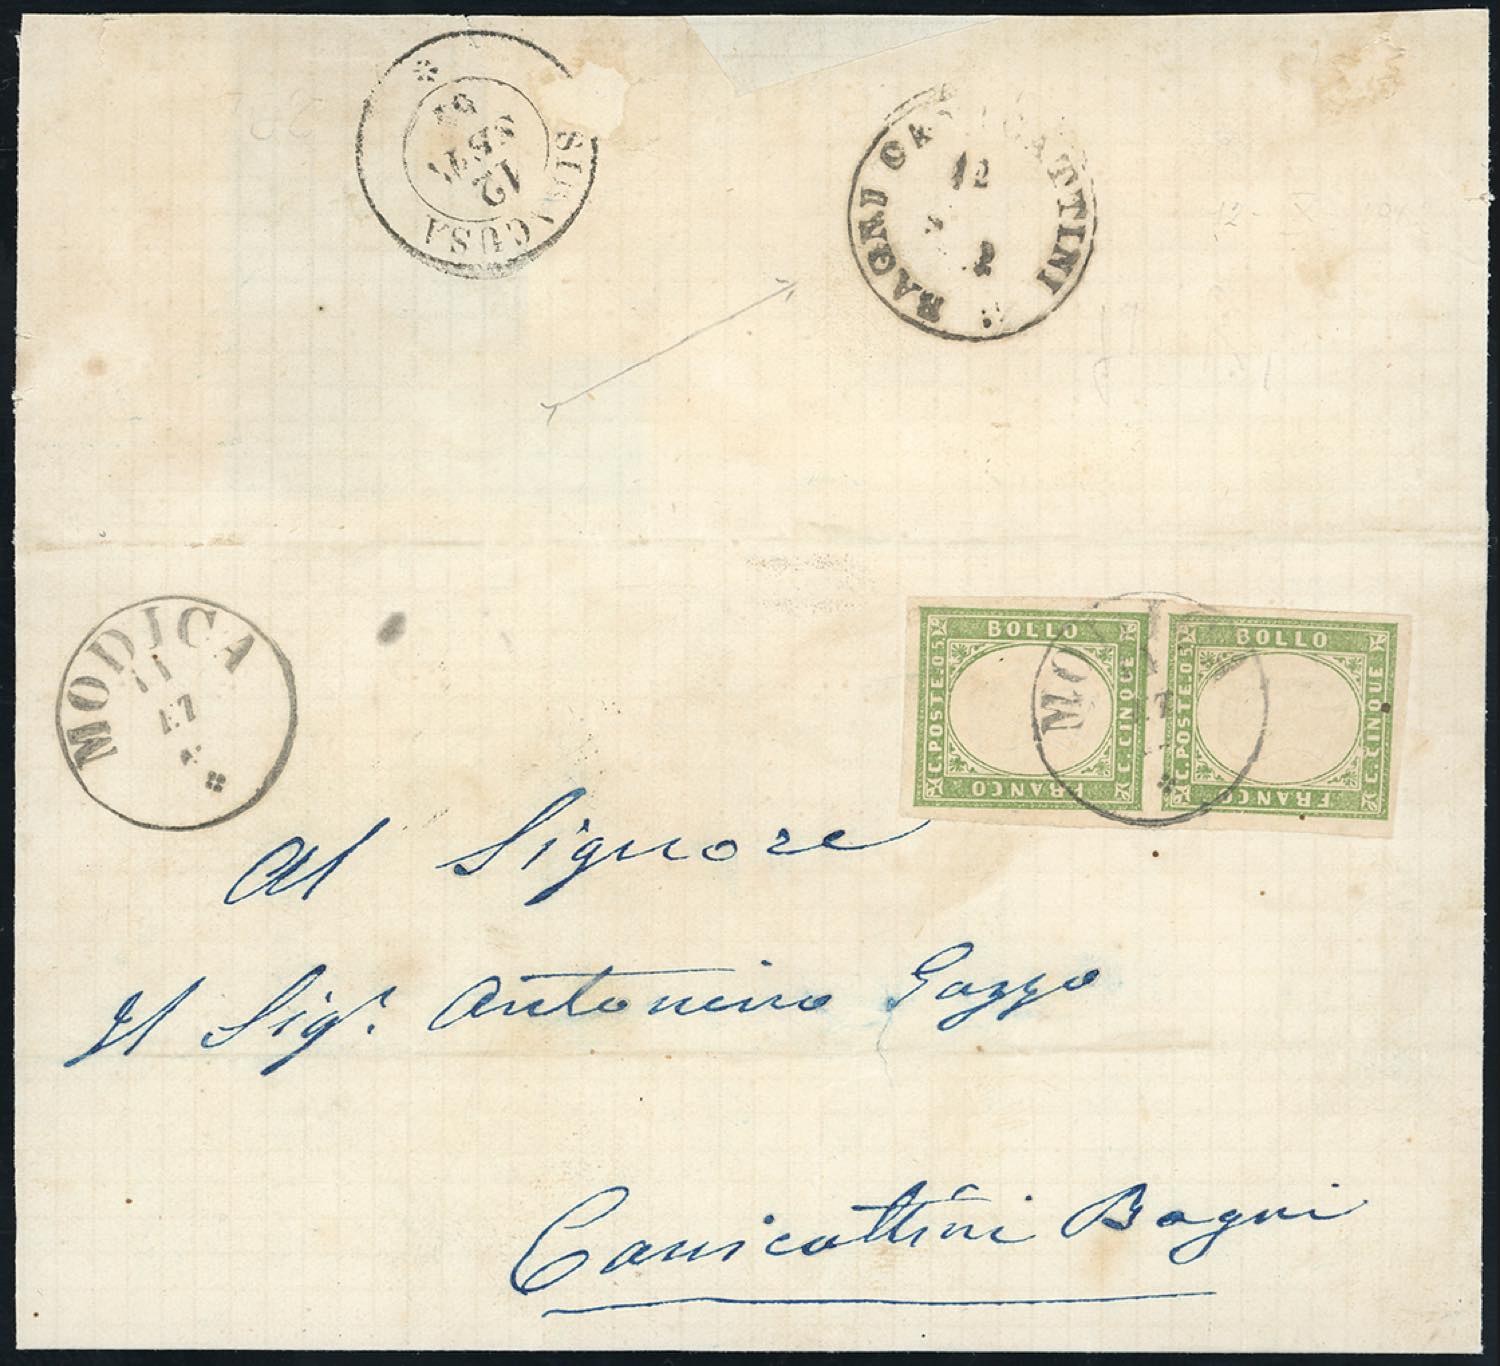 SIRACUSA
12
BAGNI CANICATTINI
12
MODICA
11
BOLLO
C. POSTE. 05
C. CINQUE
FRANCO
MO
BOLLO
C. POSTE. 05
C. CINQUE
FRANCO
Al Signore
Il Sigr. Antonino Gozzo
Canicattini Bagni